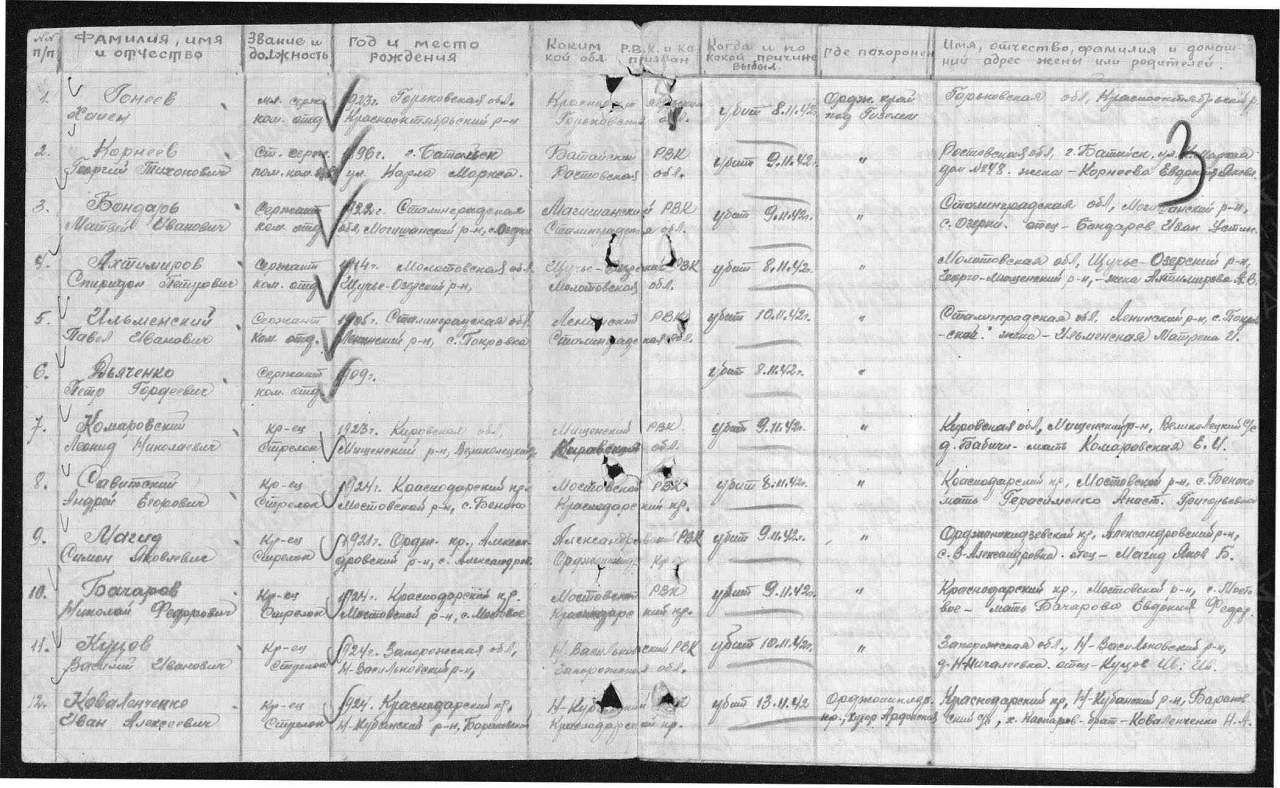 №№ п/п Фамилия, имя и отчество Звание и должность Год и место рождения Каким Р.В.К. и какой обл. призван Когда и по какой причине выбыл. Где похоронен Имя, отчество, фамилия и домашний адрес жены или родителей.
1. Гонеев мл. серж. 1923г. Горьковская обл. убит 8.11.42г. Ордж. край Горьковская обл, Краснооктябрьский р.
ком. отд. Краснооктябрьский р-н Горьковская обл. под Гизелем
2. Корнеев Ст. серж. 1896г. г. Батайск Батайский РВК убит 9.11.42г. " Ростовская обл, г. Батайск, ул. К. Маркса
Георгий Тихонович пом. ком. ул. Карла Маркса. Ростовская обл. дом №48. жена - Корнеева Евдокия
3. Бондарь Сержант Сталинградская РВК убит 9.11.42г. " Сталинградская обл, р-н,
Матвей Иванович ком. отд. обл, р-н, с. Озерки Сталинградская обл. с. Озерки. отец - Бондарев Иван Устин.
4. Ахтимиров Сержант 1914г. Молотовская обл. Щучье-Озерский РВК убит 8.11.42г. " Молотовская обл, Щучье-Озерский р-н,
Спиридон Петрович ком. отд. Щучье-Озерский р-н, Молотовская обл. р-н, - жена Ахтимирова
5. Ильменский Сержант Сталинградская обл. Ленинский РВК убит 10.11.42г. " Сталинградская обл. Ленинский р-н, с. Покров
Павел Иванович ком. отд. Ленинский р-н, с. Покровка Сталинградская обл. жена - Ильменская Матрена И.
6. Дьяченко Сержант 1909г. убит 8.11.42г. "
Петр Гордеевич ком. отд.
7. Комаровский кр-ец 1923г. Кировская обл, РВК убит 9.11.42г. " Кировская обл, р-н,
Леонид Николаевич Стрелок р-н, обл. д. Бабичи - мать Комаровская Е. И.
8. Савитский кр-ец 1924г. Краснодарский кр. Мостовской РВК убит 8.11.42г. " Краснодарский кр, Мостовской р-н, с. Беноко
Андрей Егорович Стрелок Мостовской р-н, с. Беноко Краснодарский кр. мать Герасименко Анаст. Григорьевна
9. Магид кр-ец 1921г. Ордж. кр., Алексан- Александровский РВК убит 9.11.42г. " Орджоникидзевский кр, Александровский р-н,
Симон Яковлевич Стрелок дровский р-н, с. Александров. кр. отец - Магид Яков Б.
10. Бочаров кр-ец 1924г. Краснодарский кр. Мостовский РВК убит 9.11.42г. " Краснодарский кр, Мостовской р-н, с. Мосто
Николай Федорович Стрелок Мостовской р-н, с. Мостовое Краснодарский кр. вое - мать Бочарова Евдокия Федор.
11. Куцов кр-ец 1924г. Запорожская обл, Н-Васильковский РВК убит 10.11.42г. " Запорожская обл, Н-Васильковский р-н,
Василий Иванович Стрелок Н-Васильковский р-н, Запорожская обл. отец - Куцов Ив. Ив.
12. Коваленченко кр-ец 1924г. Краснодарский кр, Н-Кубанский убит 13.11.42 Орджоникидз. Краснодарский кр, Н-Кубанский р-н,
Иван Алексеевич Стрелок Н-Кубанский р-н, Краснодарский кр. кр., хутор Ардонский брат - Коваленченко Н. А.
3